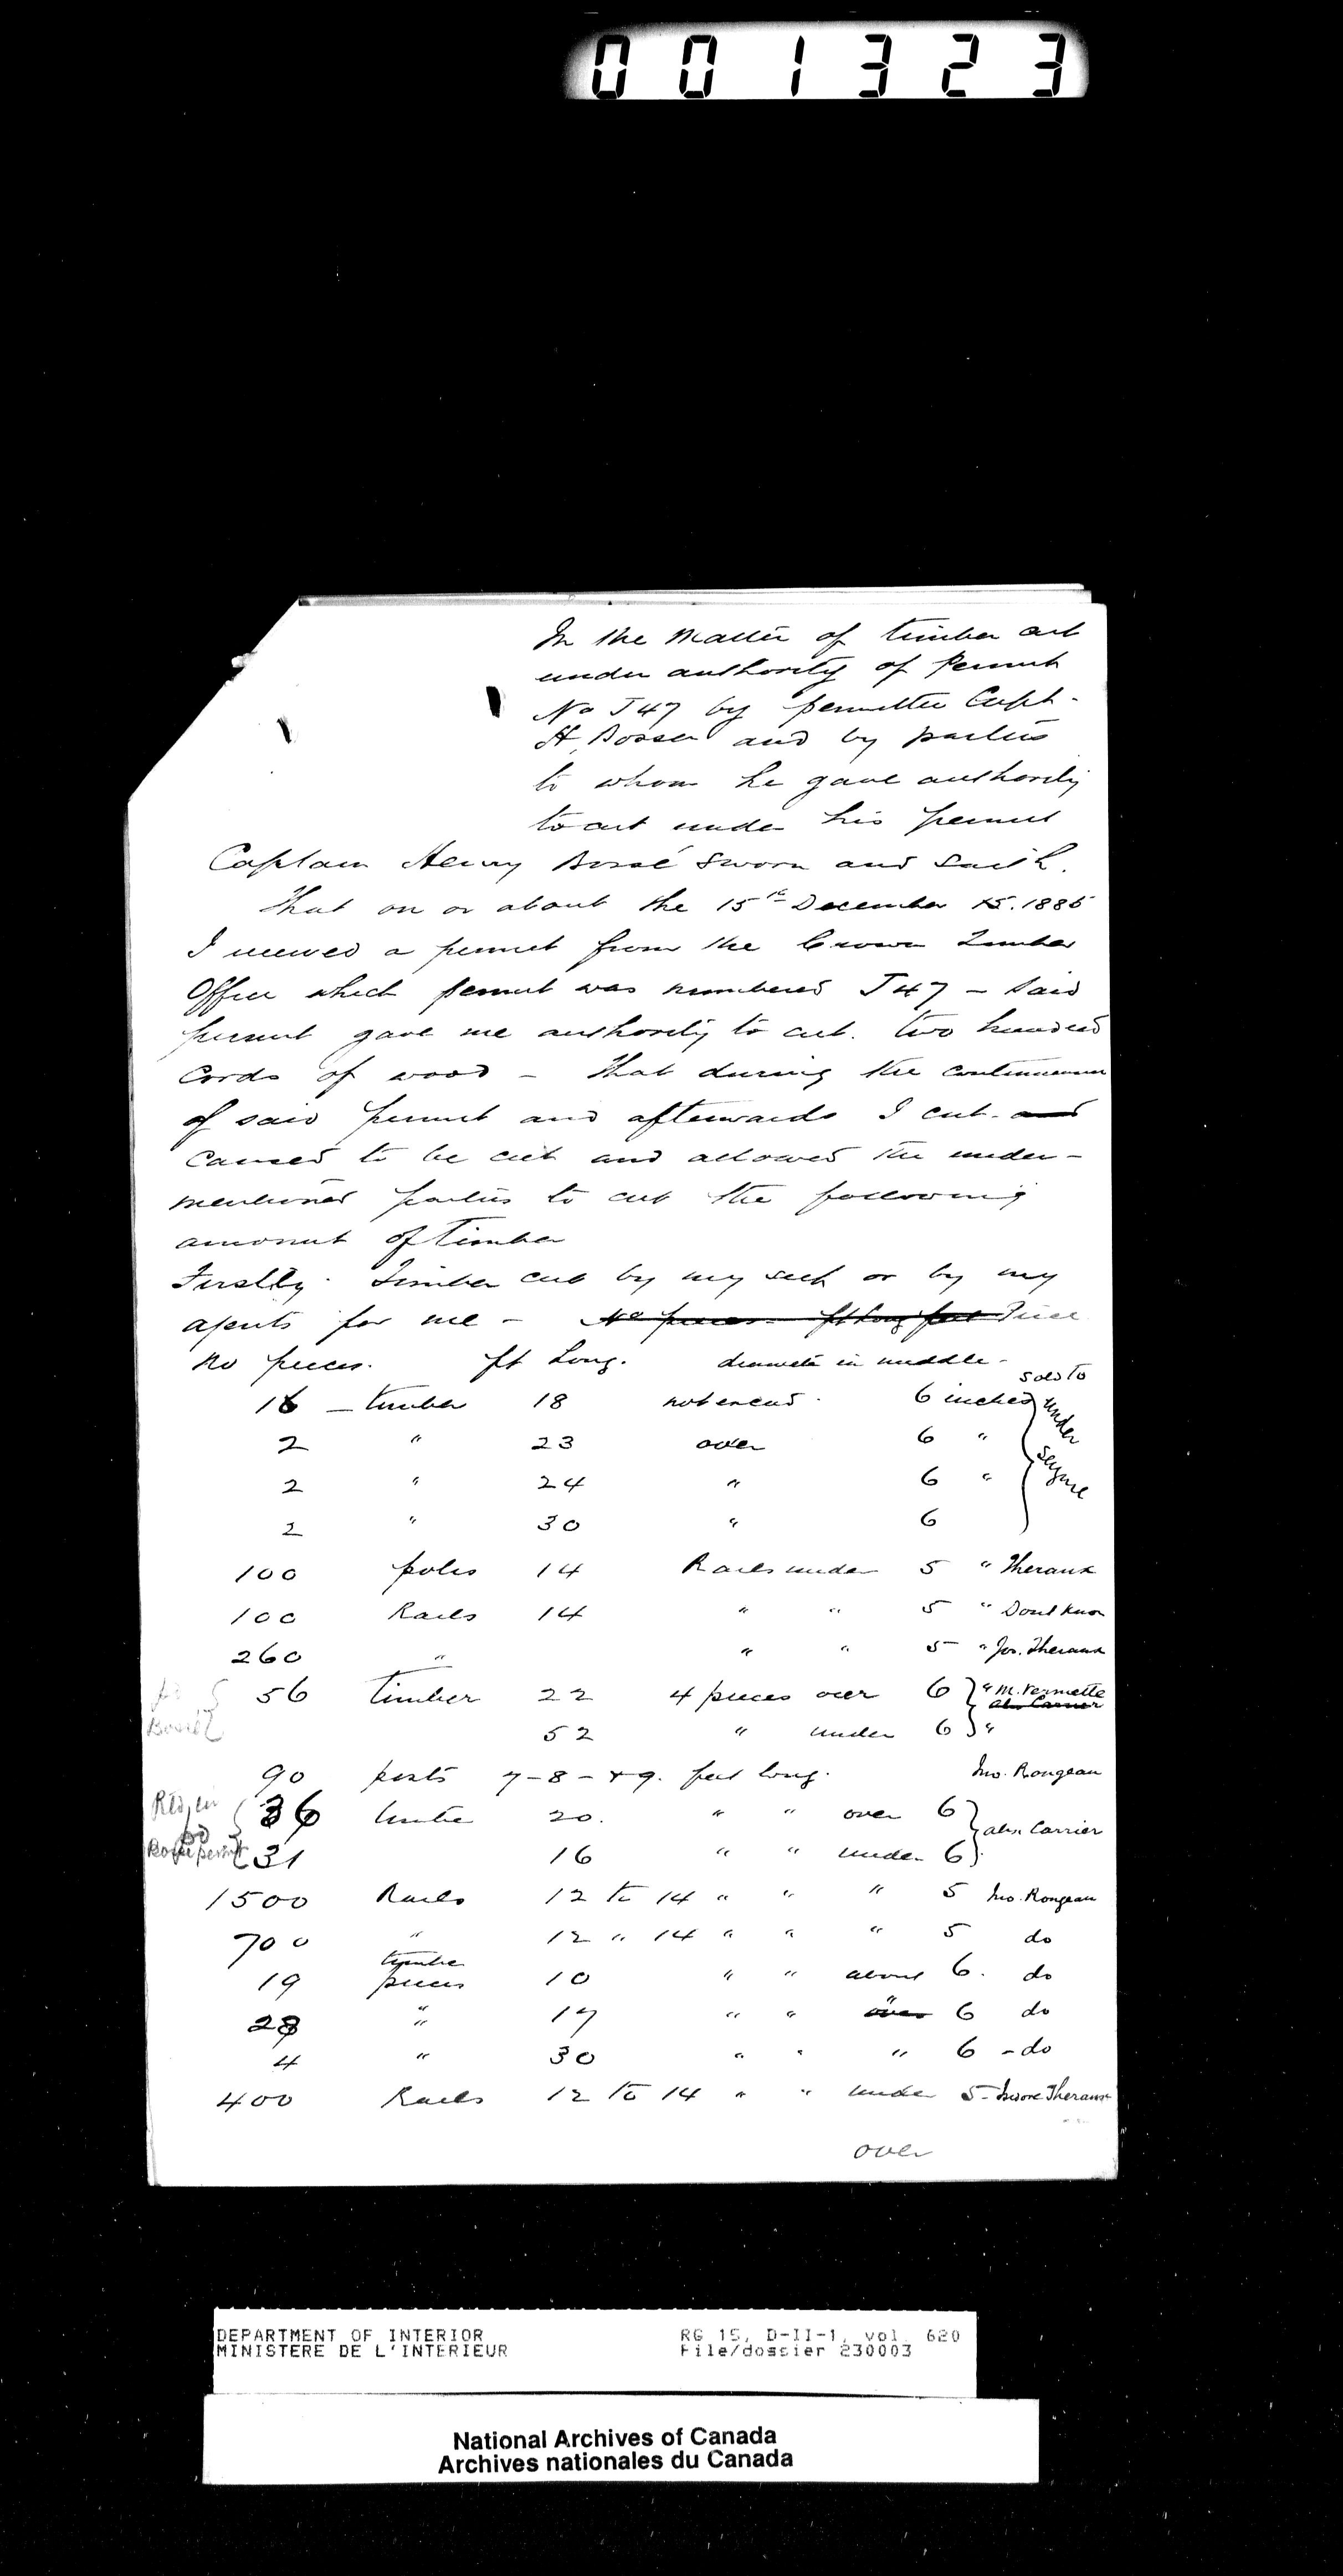 001323
In the Matter of timber cut
under authority of Permit
No J47 by permittee Capt.
H. Bosse and by parties
to whom he gave authority
to cut under his permit
Captain Henry Bossé Sworn and Saith.
That on or about the 15th December 15. 1885
I received a permit from the Crown Timber
Office which permit was numbered J47 – Said
permit gave me authority to cut. two hundred
Cords of wood – That during the continuance
of said permit and afterwards I cut and
Caused to be cut and allowed the under-
mentioned parties to cut the following
amount of Timber
Firstly. Timber cut by my self or by my
agents for me – No pieces ft long feet
No pieces. ft Long. diamete in middle – Sold To
16 – timber 18 not exceed. 6 inches under
2 " 23 over 6 "
2 " 24 " 6 " Seizure
2 " 30 " 6
100 poles 14 Rails under 5 " Theraux
100 Rails 14 " " 5 " Dont Know
260 " " " 5 " Jos. Theraux
56 timber 22 4 pieces over 6 " M. Vermette
Alex Carrier
52 " under 6 "
90 posts 7 – 8 – & 9. feet long. Jno. Rongeau
36 timbe 20. " " over 6
alex Carrier
31 16 " " under 6
1500 Rails 12 to 14 " " " 5 Jno. Rongeau
700 " 12 " 14 " " " 5 do
timbe
19 pieces 10 " " about 6. do
28 " 17 " " over " 6 do
4 " 30 " " " 6 – do
400 Rails 12 To 14 " " under 5 – Theraux
over
DEPARTMENT OF INTERIOR RG 15, D-II-1, vol. 620
MINISTERE DE L'INTERIEUR File/dossier 230003
National Archives of Canada
Archives nationales du Canada